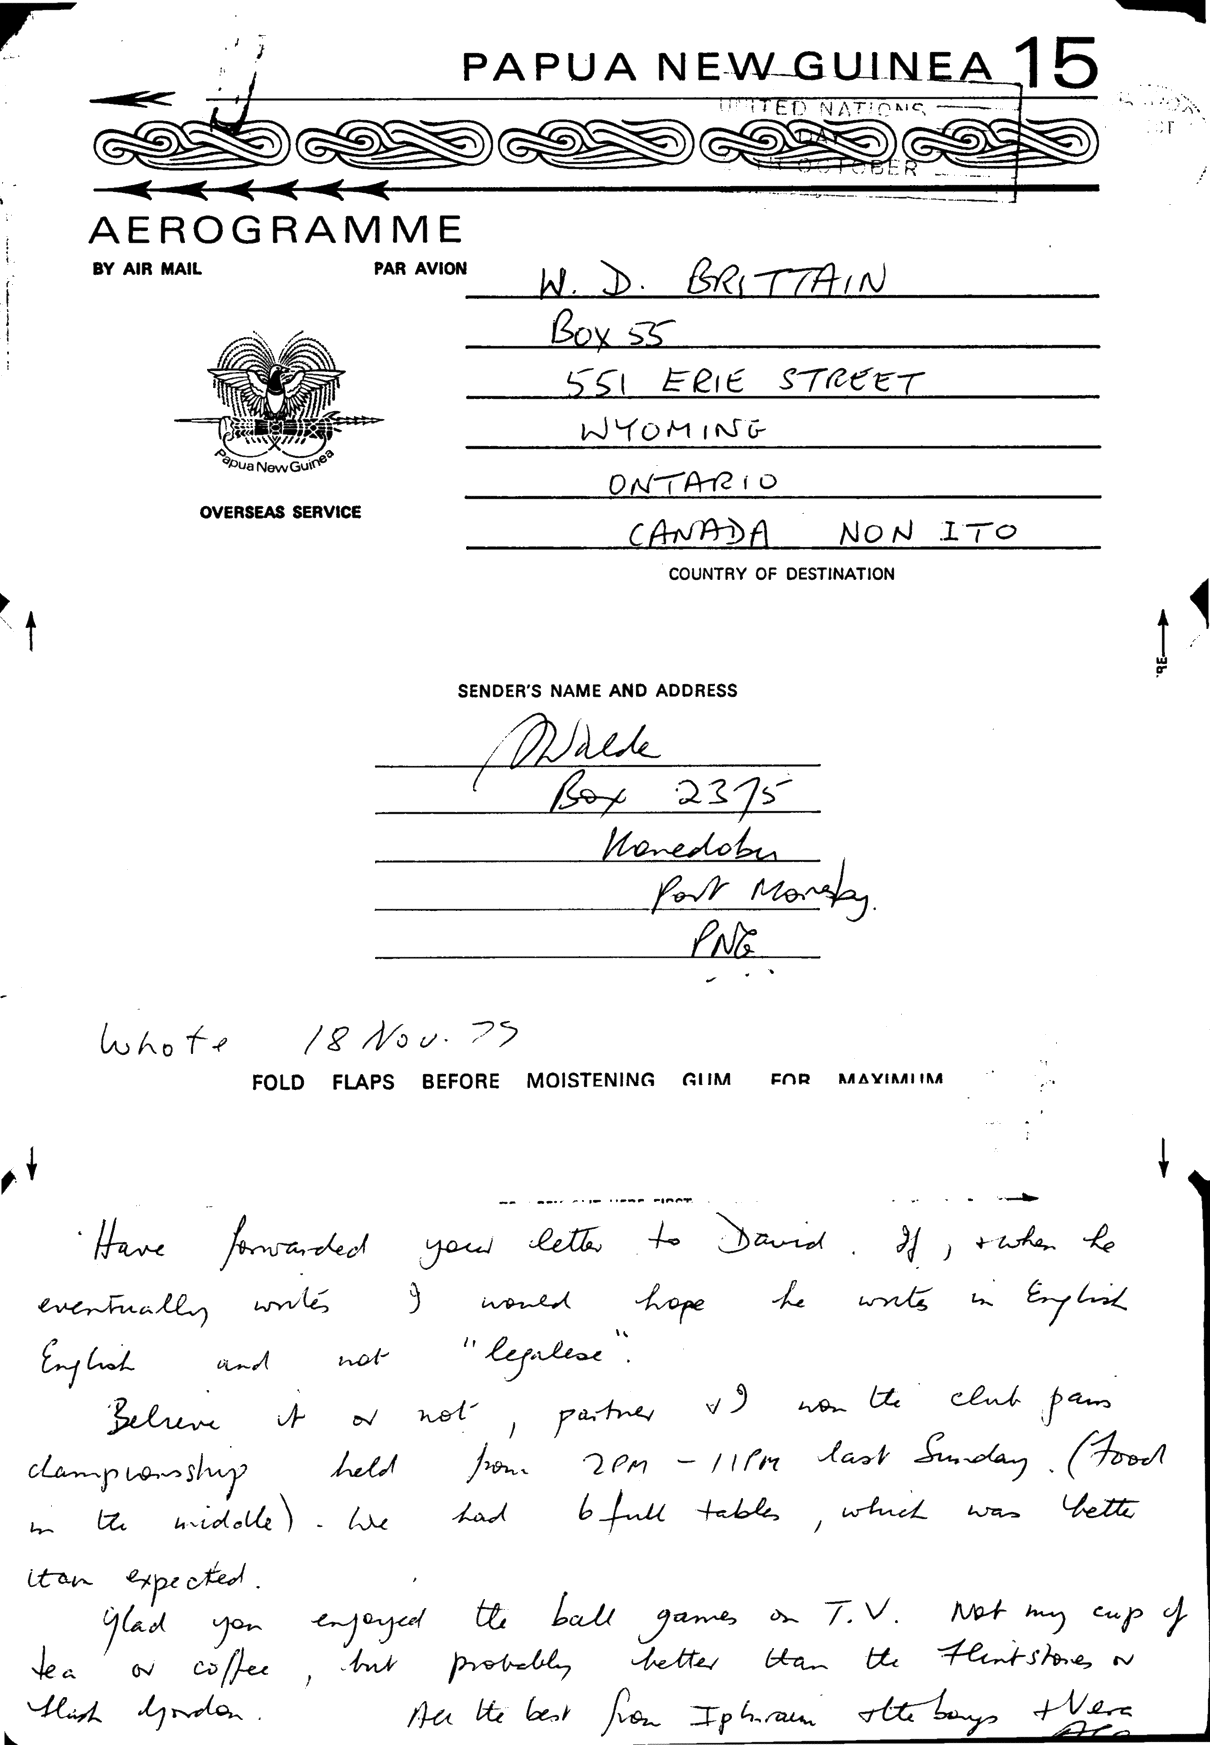 PAPUA NEW GUINEA 15
UNITED NATIONS
DAY
OCTOBER
AEROGRAMME
BY AIR MAIL PAR AVION
W. D. BRITTAIN
Box 55
551 ERIE STREET
WYOMING
ONTARIO
CANADA NON ITO
COUNTRY OF DESTINATION
Papua New Guinea
OVERSEAS SERVICE
SENDER'S NAME AND ADDRESS
Box 2375
Konedobu
Port Moresby.
PNG
Whote 18 Nov. 75
FOLD FLAPS BEFORE MOISTENING GUM FOR MAXIMUM
Have forwarded your letter to David. If, + when he
eventually writes I would hope he writes in English
English and not "legalese".
Believe it or not, partner & I won the club pairs
championship held from 2PM - 11PM last Sunday. (Food
in the middle). We had 6 full tables, which was better
than expected.
Glad you enjoyed the ball games on T.V. Not my cup of
tea or coffee, but probably better than the Flintstones or
Flash Gordon. All the best from Iphraim + the boys + Vera